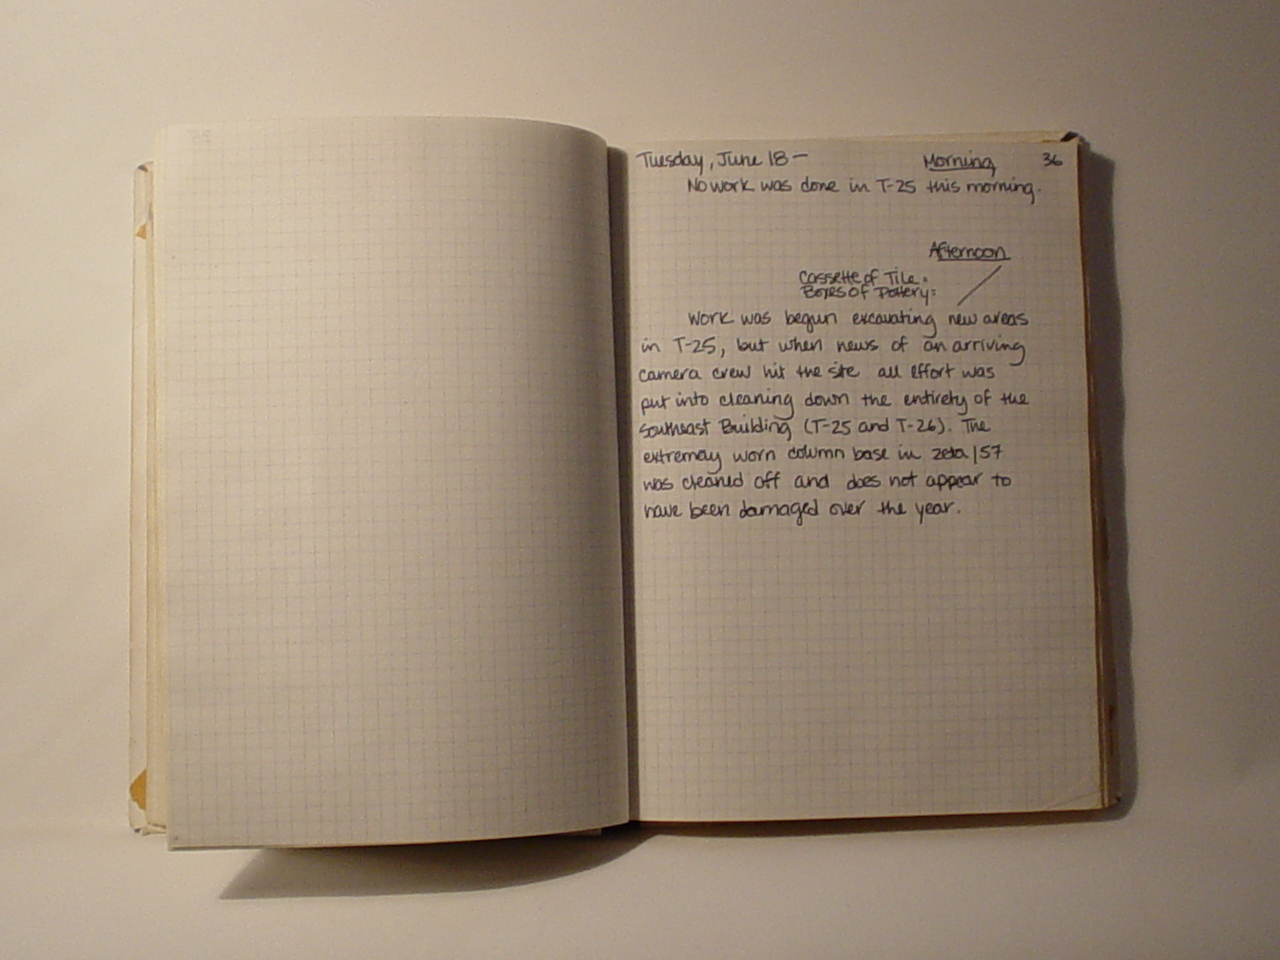 Tuesday, June 18 — Morning 36
No work was done in T-25 this morning.
Afternoon
Cassette of Tile:
Boxes of Pottery:
Work was begun excavating new areas
in T-25, but when news of an arriving
camera crew hit the site all effort was
put into cleaning down the entirety of the
Southeast Building (T-25 and T-26). The
extremely worn column base in zeta/57
was cleaned off and does not appear to
have been damaged over the year.